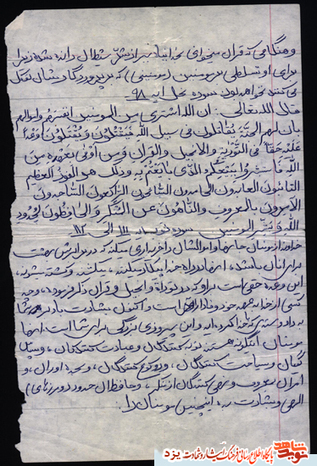 و هنگامی که قرآن میخوانی بخدا پناه ببر از شر شیطان رانده شده زیرا
برای او تسلطی بر مومنین (مومنینی) که بر پروردگارشان توکل
می کنند نخواهد بود سوره نحل آیه ۹۸
قال الله تعالی: ان الله اشتری من المومنین انفسهم و اموالهم
بان لهم الجنة یقاتلون فی سبیل الله فیقتلون و یقتلون وعدا
علیه حقا فی التوریة و الانجیل و القرآن و من اوفی بعهده من
الله فاستبشروا ببیعکم الذی بایعتم به و ذلک هو الفوز العظیم
التائبون العابدون الحامدون السائحون الراکعون الساجدون
الآمرون بالمعروف و الناهون عن المنکر و الحافظون لحدود
الله و بشر المومنین سوره توبه آیه ۱۱۱ الی ۱۱۲
خدا از مومنان جانها و اموالشان را خریداری میکند که در برابرش بهشت
برای آنان باشد، آنها در راه خدا پیکار میکنند، میکشند و کشته میشوند،
این وعده حقی است بر او که در تورات و انجیل و قرآن ذکر فرموده و چه
کسی از خدا به عهد خود وفادارتر است و اکنون بشارت باد بر شما
به داد و ستدی که با خدا کرده اید و این پیروزی بزرگی برای شما است آنها
مومنان توبه کنندگان و عبادت کنندگان و سپاس
گویان و سیاحت کنندگان و رکوع کنندگان و سجده آوران و
آمران بمعروف و نهی کنندگان از منکر و حافظان حدود (مرزهای)
الهی و بشارت ده اینچنین مومنان را.
نوید شاهد
پایگاه اطلاع رسانی فرهنگ ایثار و شهادت یزد